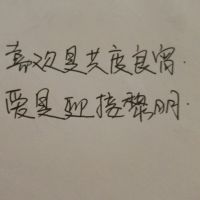 喜欢是共度良宵.
爱是迎接黎明.